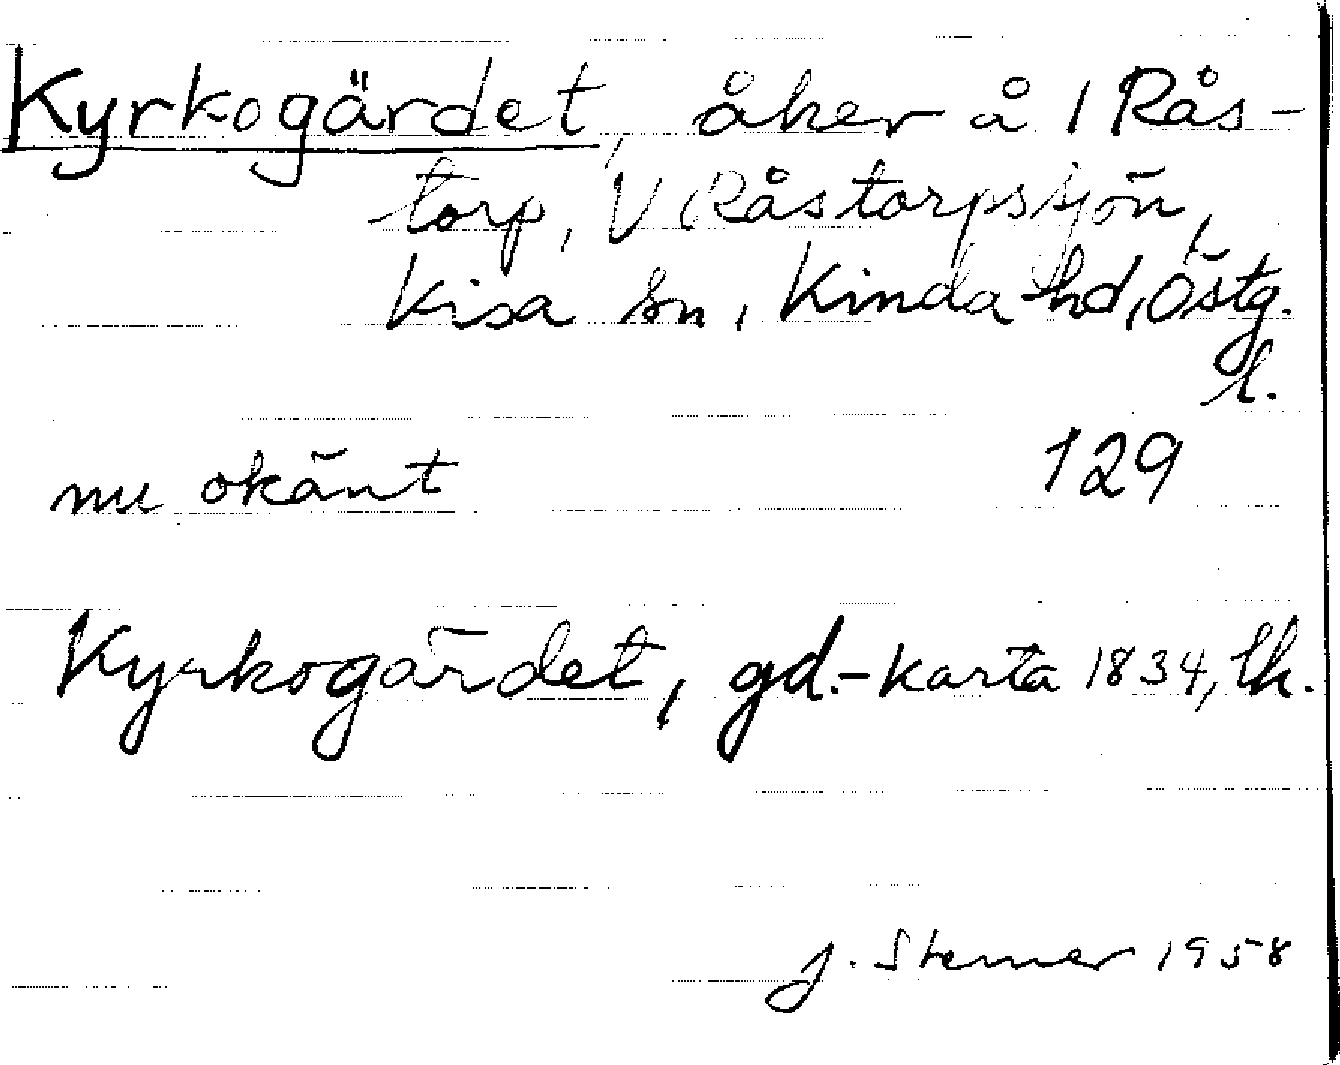 Kyrkogärdet, åker å 1 Rås-
torp, V Råstorpssjön,
Kisa sn, Kinda hd, Östg.
l.
nu okänt 129
Kyrkogärdet, gd.-karta 1834, lk.
J. Stenner 1958